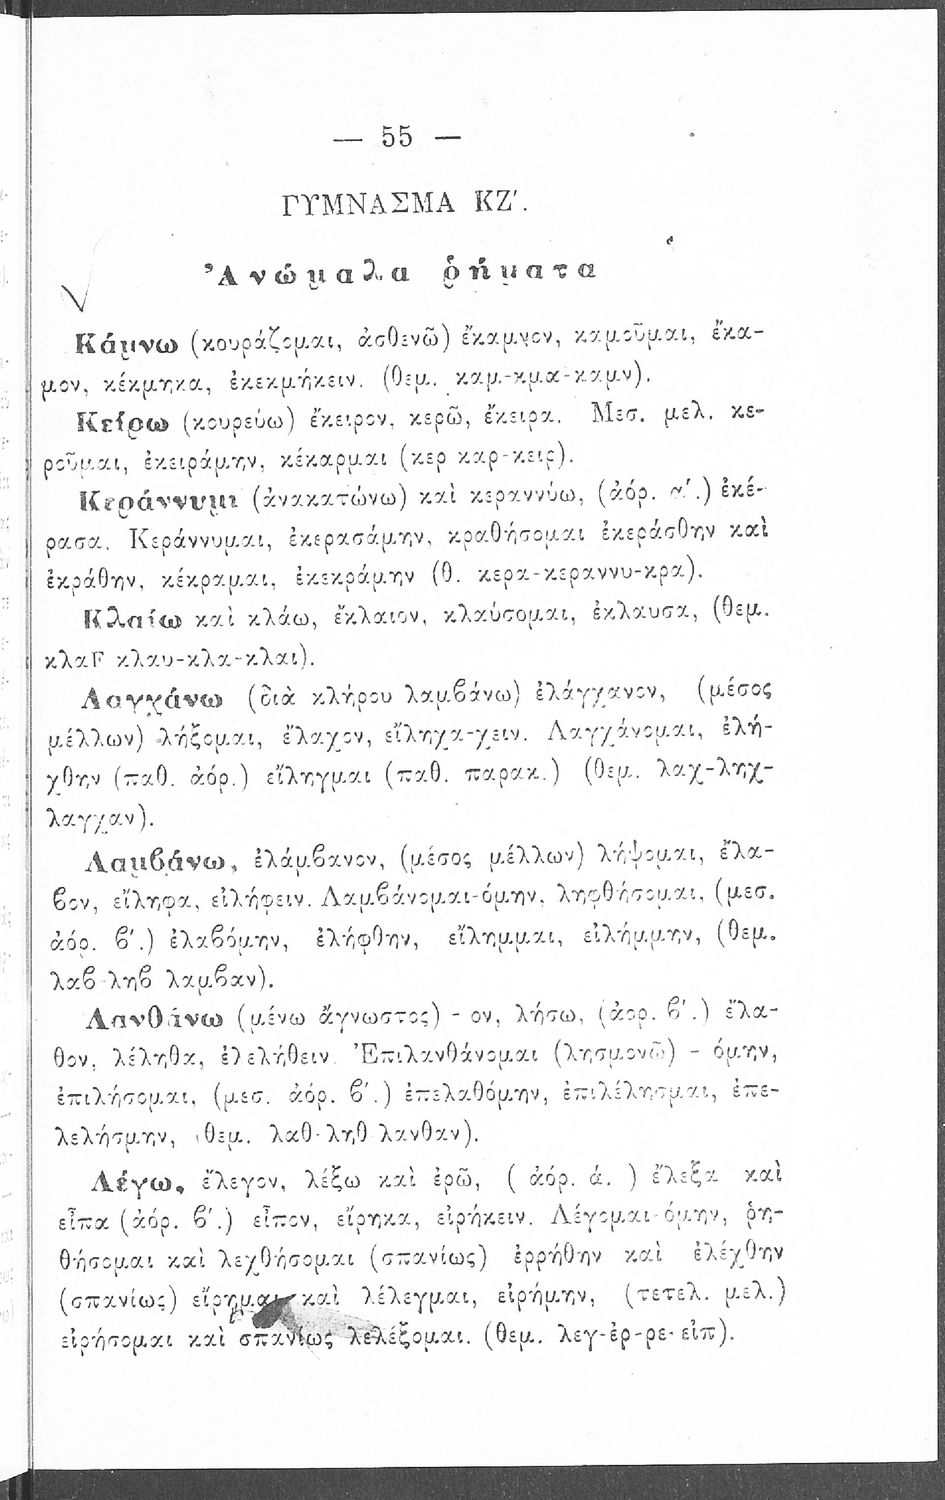 — 55 —
ΓΥΜΝΑΣΜΑ ΚΖ΄.
Ἀνώμαλα ῥήματα
Κάμνω (κουράζομαι, ἀσθενῶ) ἔκαμνον, καμοῦμαι, ἔκα-
μον, κέκμηκα, ἐκεκμήκειν. (θεμ. καμ-κμα-καμν).
Κείρω (κουρεύω) ἔκειρον, κερῶ, ἔκειρα. Μεσ. μελ. κε-
ροῦμαι, ἐκειράμην, κέκαρμαι (κερ καρ-κειρ).
Κεράννυμι (ἀνακατώνω) καὶ κεραννύω, (ἀόρ. α΄.) ἐκέ-
ρασα. Κεράννυμαι, ἐκερασάμην, κραθήσομαι ἐκεράσθην καὶ
ἐκράθην, κέκραμαι, ἐκεκράμην (θ. κερα-κεραννυ-κρα).
Κλαίω καὶ κλάω, ἔκλαιον, κλαύσομαι, ἐκλαυσα, (θεμ.
κλαF κλαυ-κλα-κλαι).
Λαγχάνω (διὰ κλήρου λαμβάνω) ἐλάγχανον, (μέσος
μέλλων) λήξομαι, ἔλαχον, εἴληχα-χειν. Λαγχάνομαι, ἐλή-
χθην (παθ. ἀόρ.) εἴληγμαι (παθ. παρακ.) (θεμ. λαχ-ληχ-
λαγχαν).
Λαμβάνω, ἐλάμβανον, (μέσος μέλλων) λήψομαι, ἔλα-
βον, εἴληφα, εἰλήφειν. Λαμβάνομαι-όμην, ληφθήσομαι, (μεσ.
ἀόρ. β΄.) ἐλαβόμην, ἐλήφθην, εἴλημμαι, εἰλήμμην, (θεμ.
λαβ-ληβ λαμβαν).
Λανθάνω (μένω ἄγνωστος) - ον, λήσω, (ἀορ. β΄.) ἔλα-
θον, λέληθα, ἐλελήθειν. Ἐπιλανθάνομαι (λησμονῶ) - όμην,
ἐπιλήσομαι, (μεσ. ἀόρ. β΄.) ἐπελαθόμην, ἐπιλέλησμαι, ἐπε-
λελήσμην, (θεμ. λαθ-ληθ λανθαν).
Λέγω, ἔλεγον, λέξω καὶ ἐρῶ, ( ἀόρ. ά. ) ἔλεξα καὶ
εἶπα (ἀόρ. β΄.) εἶπον, εἴρηκα, εἰρήκειν. Λέγομαι-όμην, ῥη-
θήσομαι καὶ λεχθήσομαι (σπανίως) ἐρρήθην καὶ ἐλέχθην
(σπανίως) εἴρημαι καὶ λέλεγμαι, εἰρήμην, (τετελ. μελ.)
εἰρήσομαι καὶ σπανίως λελέξομαι. (θεμ. λεγ-ἐρ-ρε-εἰπ).